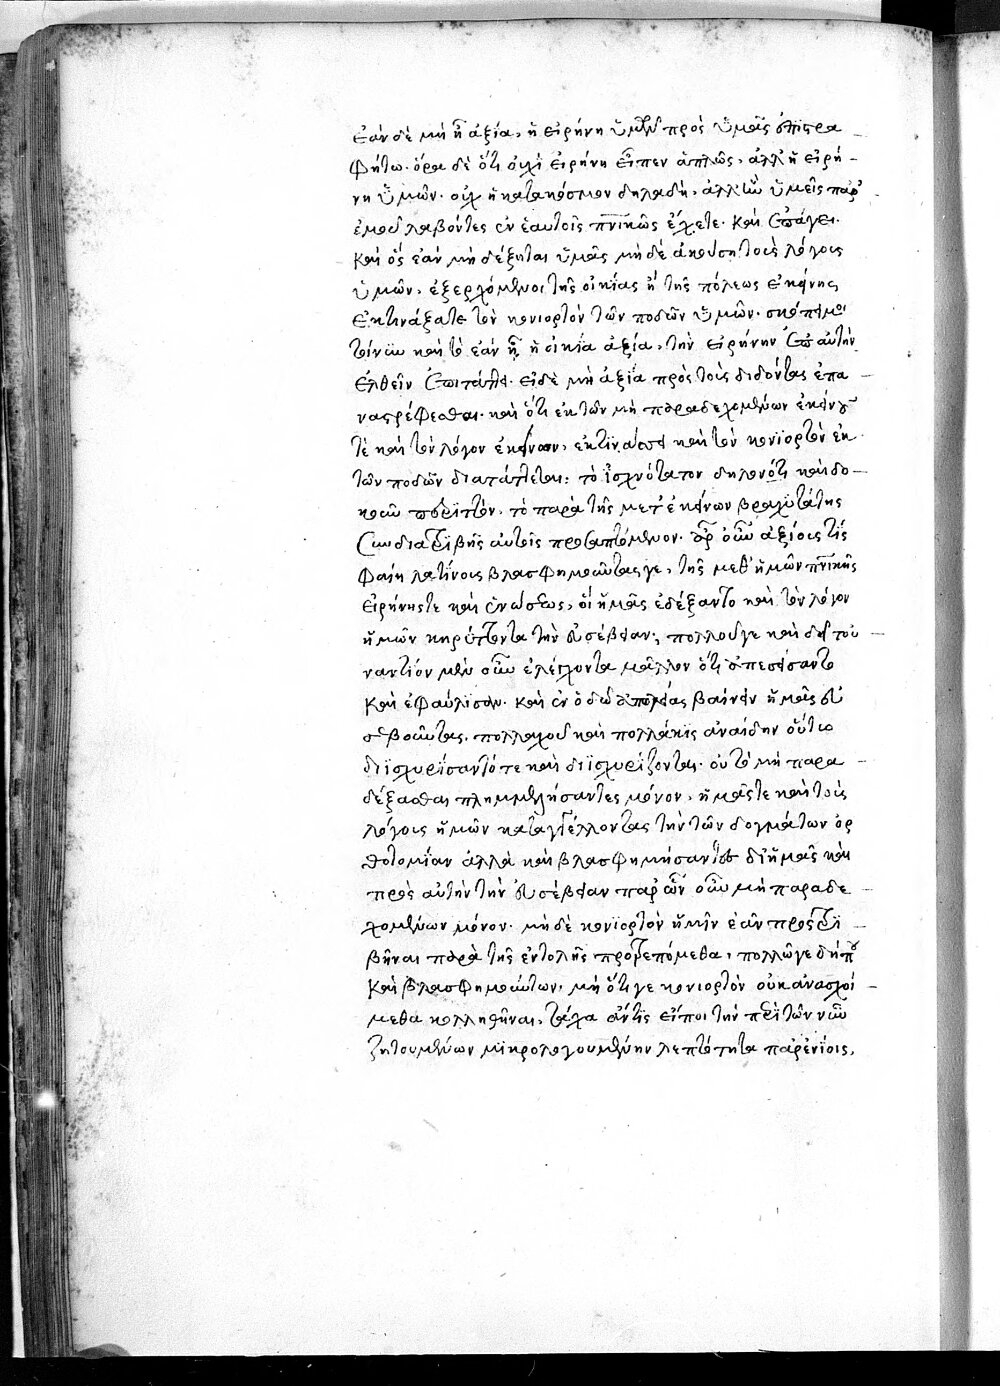 ἐὰν δὲ μὴ ἦ ἀξία, ἡ εἰρήνη ὑμῶν πρὸς ὑμᾶς ἐπιστρα
φήτω. ὅρα δὲ ὅτι οὐχὶ εἰρήνη εἶπεν ἁπλῶς, ἀλλ' ἡ εἰρή
νη ὑμῶν. οὐχ ἡ κατὰ κόσμον δηλαδή, ἀλλ' ἣν ὑμεῖς παρ'
ἐμοῦ λαβόντες ἐν ἑαυτοῖς πνικῶς ἔχετε. καὶ ἐπάγει.
καὶ ὃς ἐὰν μὴ δέξηται ὑμᾶς μὴ δὲ ἀκούσῃ τοὺς λόγους
ὑμῶν, ἐξερχόμενοι τῆς οἰκίας ἢ τῆς πόλεως ἐκείνης,
ἐκτινάξατε τὸν κονιορτὸν τῶν ποδῶν ὑμῶν. σκόπει μοι
τοίνυν καὶ τὸ ἐὰν ἦ ἡ οἰκία ἀξία, τὴν εἰρήνην ἐπ' αὐτὴν
ἐλθεῖν ἐπιτάττει. εἰ δὲ μὴ ἀξία πρὸς τοὺς διδόντας ἐπα
ναστρέφεσθαι. καὶ ὅτι ἐκ τῶν μὴ παραδεχομένων ἐκείνους
τὲ καὶ τὸν λόγον ἐκείνων, ἐκτινάσσειν καὶ τὸν κονϊορτὸν ἐκ
τῶν ποδῶν διατάττεται. τὸ ἰσχνότατον δηλονότι καὶ δο
κοῦν περιττὸν, τὸ παρὰ τῆς μετ' ἐκείνων βραχυτάτης
συνδιατριβῆς αὐτοῖς προσαπτόμενον. ἆρ' οὖν ἀξίους τίς
φαίη λατίνους βλασφημοῦντας γε, τῆς μεθ' ἡμῶν πνικῆς
εἰρήνης τε καὶ ἑνώσεως, οἳ ἡμᾶς ἐδέξαντο καὶ τὸν λόγον
ἡμῶν κηρύττοντα τὴν εὐσέβειαν, πολλοῦ γε καὶ δεῖ τοὐ
ναντίον μὲν οὖν ἐλέγχοντα μᾶλλον ὅτι ἀπεσείσαντο
καὶ ἐφαύλισαν. καὶ ἐν ὁδῷ ἀπωλείας βαίνειν ἡμᾶς εὐ
σεβοῦντας, πολλαχοῦ καὶ πολλάκις ἀναίδην οὕτω
διϊσχυρίσαντό τε καὶ διϊσχυρίζονται. οὐ τὸ μὴ παρα
δέξασθαι πλημμελήσαντες μόνον, ἡμᾶς τε καὶ τοὺς
λόγους ἡμῶν καταγγέλλοντας τὴν τῶν δογμάτων ὀρ
θοτομίαν ἀλλὰ καὶ βλασφημήσαντες δι' ἡμᾶς καὶ
πρὸς αὐτὴν τὴν εὐσέβειαν παρ' ὧν οὖν μὴ παραδε
χομένων μόνον. μὴ δὲ κονϊορτὸν ἡμῖν ἐᾶν προστρι
βῆναι παρὰ τῆς ἐντολῆς προτρεπόμεθα, πολλῶ γε δήπου
καὶ βλασφημούντων, μὴ ὅτι γε κονιορτὸν οὐκ ἀνασχοί
μεθα κολληθῆναι, τάχα ἄν τις εἴποι τὴν περὶ τῶν νῦν
ζητουμένων μϊκρολογουμένην λεπτότητα παρ' ἐνίοις,